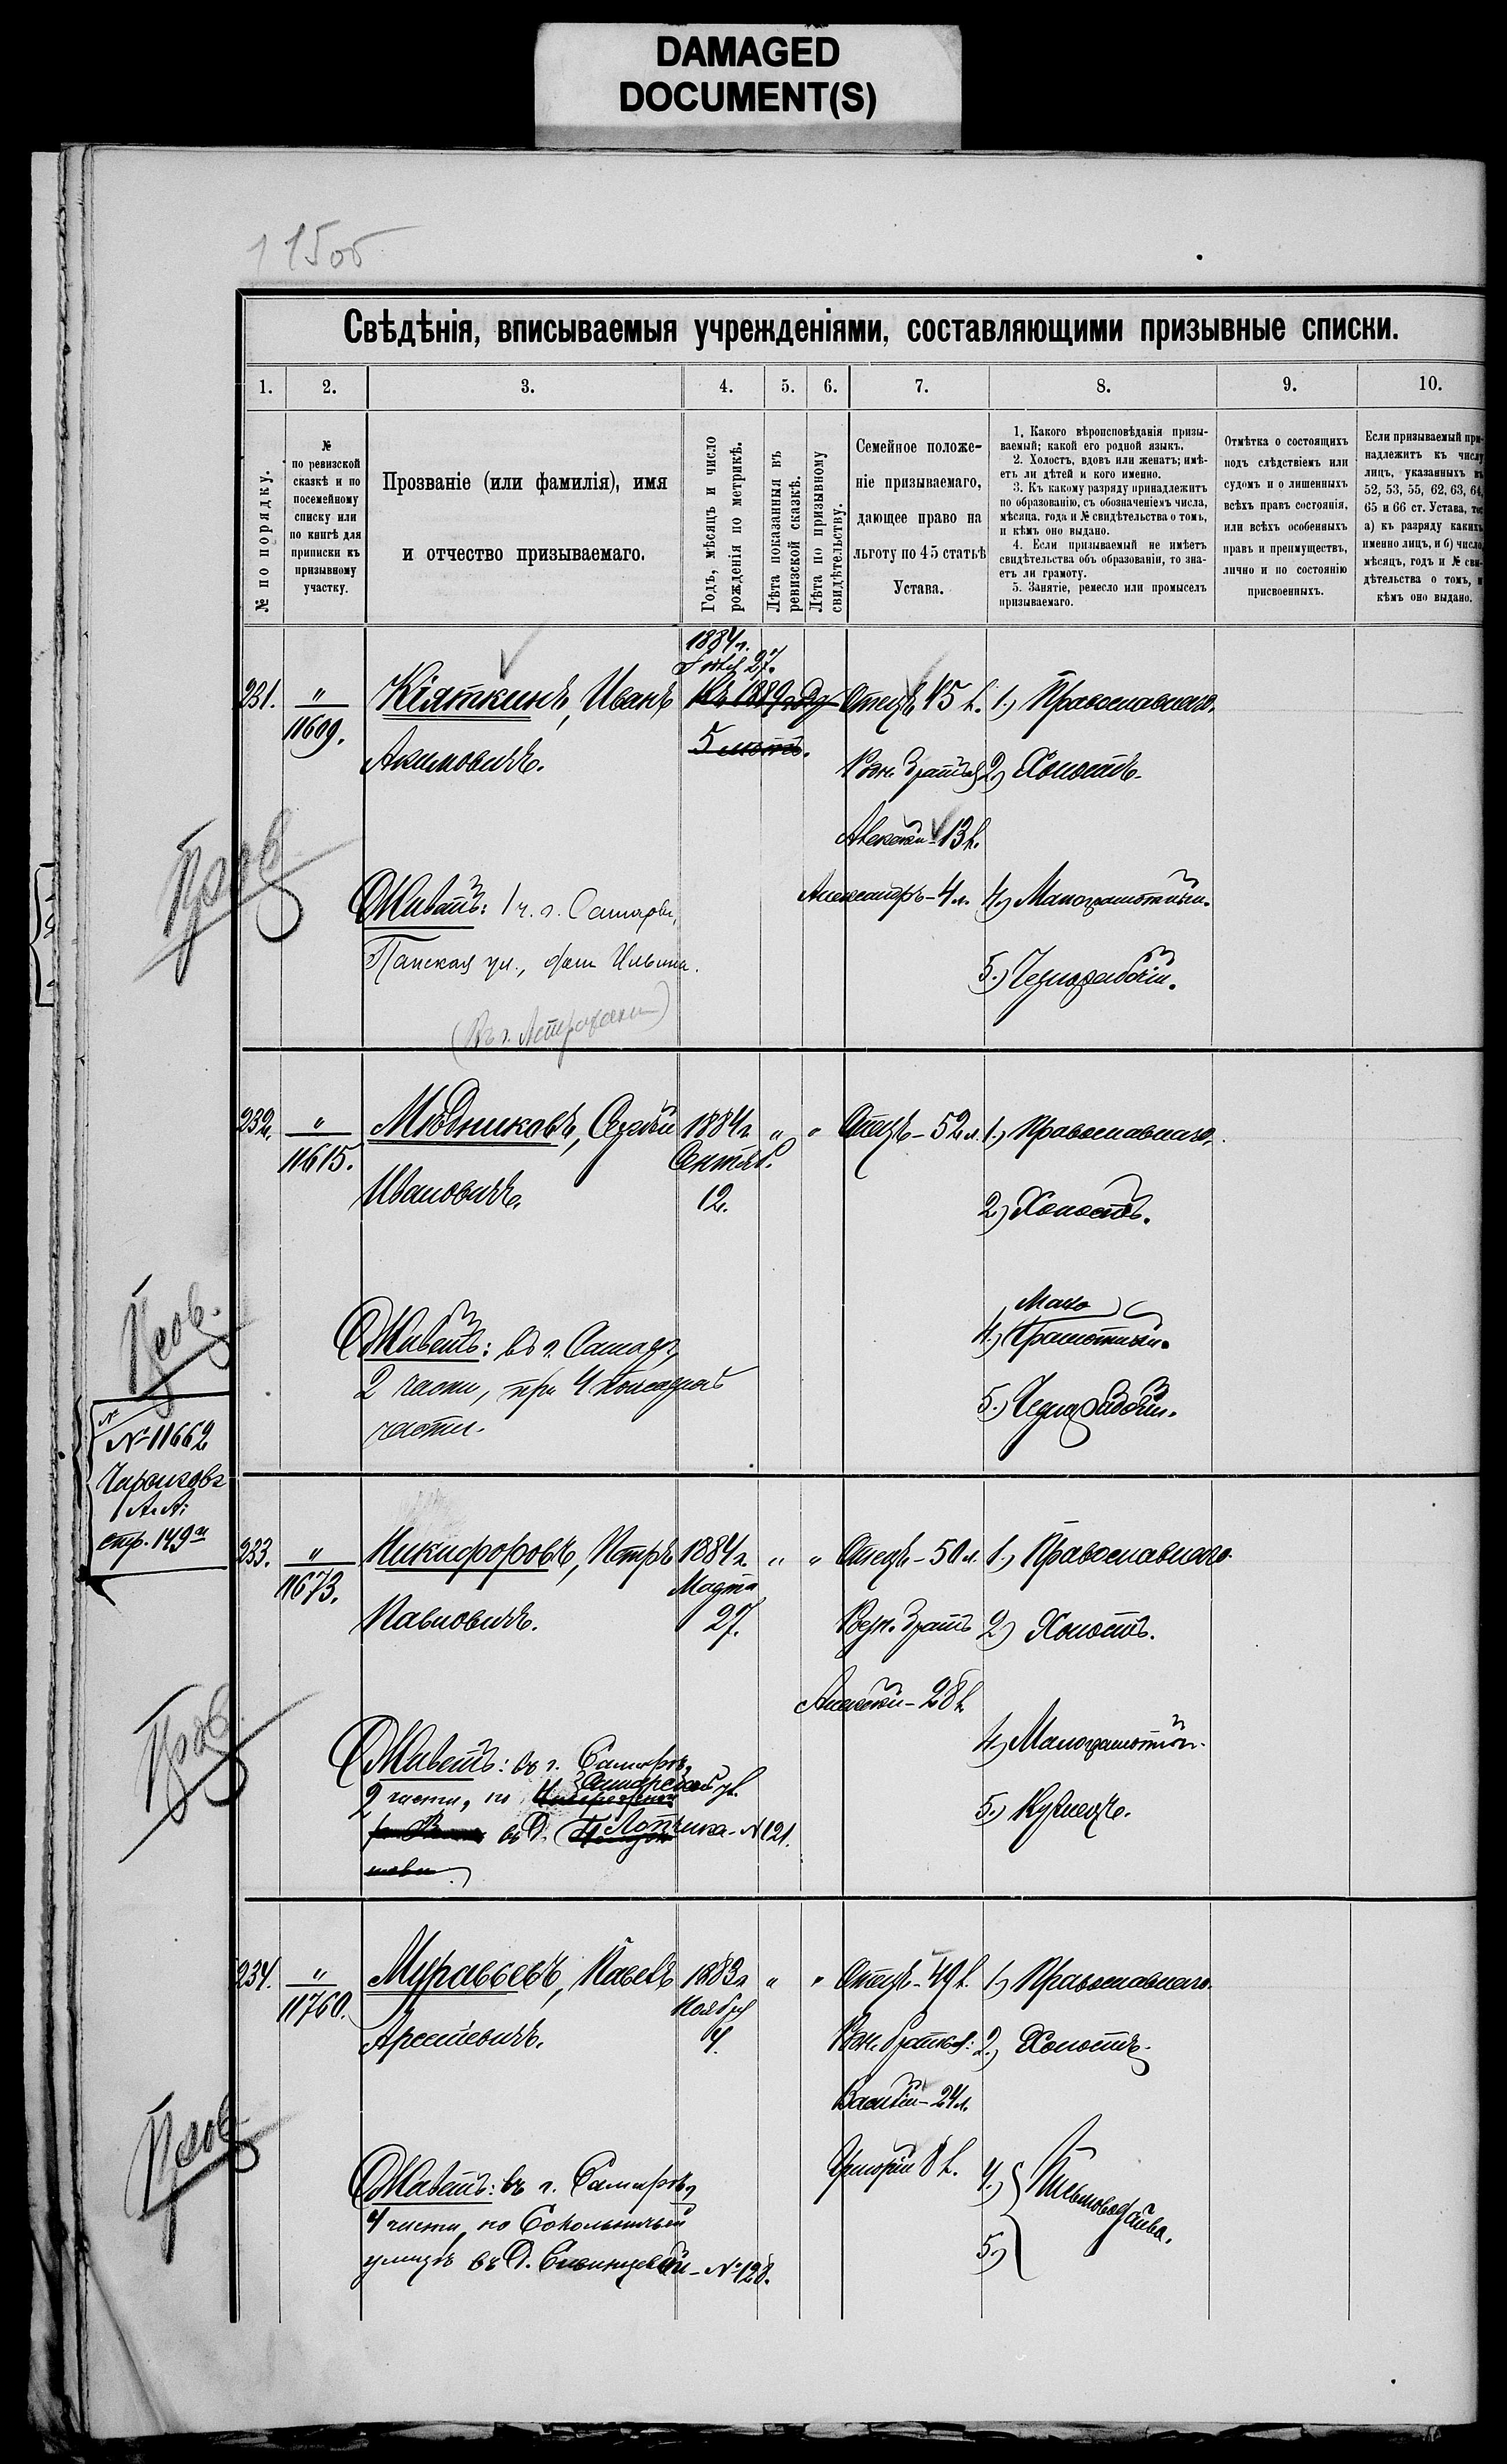 DAMAGED
DOCUMENT(S)
115об
Свѣдѣнія, вписываемыя учрежденіями, составляющими призывные списки.
1. 2. 3. 4. 5. 6. 7. 8. 9. 10.
№ по порядку.
№
по ревизской
сказкѣ и по
посемейному
списку или
по книгѣ для
приписки къ
призывному
участку.
Прозваніе (или фамилія), имя
и отчество призываемаго.
Годъ, мѣсяцъ и число
рожденія по метрикѣ.
Лѣта показанныя въ
ревизской сказкѣ.
Лѣта по призывному
свидѣтельству.
Семейное положе-
ніе призываемаго,
дающее право на
льготу по 45 статьѣ
Устава.
1. Какого вѣроисповѣданія призы-
ваемый; какой его родной языкъ.
2. Холостъ, вдовъ или женатъ; имѣ-
етъ ли дѣтей и кого именно.
3. Къ какому разряду принадлежитъ
по образованію, съ обозначеніемъ числа,
мѣсяца, года и № свидѣтельства о томъ,
и кѣмъ оно выдано.
4. Если призываемый не имѣетъ
свидѣтельства объ образованіи, то зна-
етъ ли грамоту.
5. Занятіе, ремесло или промыселъ
призываемаго.
Отмѣтка о состоящихъ
подъ слѣдствіемъ или
судомъ и о лишенныхъ
всѣхъ правъ состоянія,
или всѣхъ особенныхъ
правъ и преимуществъ,
лично и по состоянію
присвоенныхъ.
Если призываемый при-
надлежитъ къ числу
лицъ, указанныхъ въ
52, 53, 55, 62, 63, 64,
65 и 66 ст. Устава, то:
а) къ разряду какихъ
именно лицъ, и б) число,
мѣсяцъ, годъ и № сви-
дѣтельства о томъ, и
кѣмъ оно выдано.
231. "
11609.
Кіяткинъ, Иванъ
Акимовичъ.
1884 г.
27.
Къ 1889 году
5 лѣтъ.
Отецъ 45 л.
Родн. братья
Алексѣй - 13 л.
Александръ - 4 л.
1.) Православнаго.
2.) Холостъ.
4.) Малограмотный.
5.) Чернорабочій.
Живетъ: 1 ч. г. Самары,
Панская ул., домъ Ильина.
(Въ г. Астрахани)
232. "
11615.
Мѣдниковъ, Сергѣй
Ивановичъ.
1884 г. " "
Сентяб.
12.
Отецъ - 52 л.
1.) Православнаго.
2.) Холостъ.
Мало
4.) Грамотный.
5.) Чернорабочій.
Живетъ: въ г. Самарѣ,
2 части, при 4 пожарной
части.
№ 11662
А. А.
стр. 149
233. "
11673.
Никифоровъ, Петръ
Павловичъ.
1884 г. " "
Марта
27.
Отецъ - 50 л.
Родн. братъ
Алексѣй - 28 л.
1.) Православнаго.
2.) Холостъ.
4.) Малограмотный.
5.) Кузнецъ.
Живетъ: въ г. Самарѣ,
2 части, по Самарской ул.
въ д. - № 121.
234. "
11760.
Муравьевъ, Павелъ
Арсеньевичъ.
1883 г. " "
Ноября
4.
Отецъ - 49 л.
Родн. братья:
Василій - 24 л.
Григорій 8 л.
1.) Православнаго.
2.) Холостъ.
4.)
5.)
Письмоводства.
Живетъ: въ г. Самарѣ,
4 части, по Сокольничьей
улицѣ въ д. - № 128.